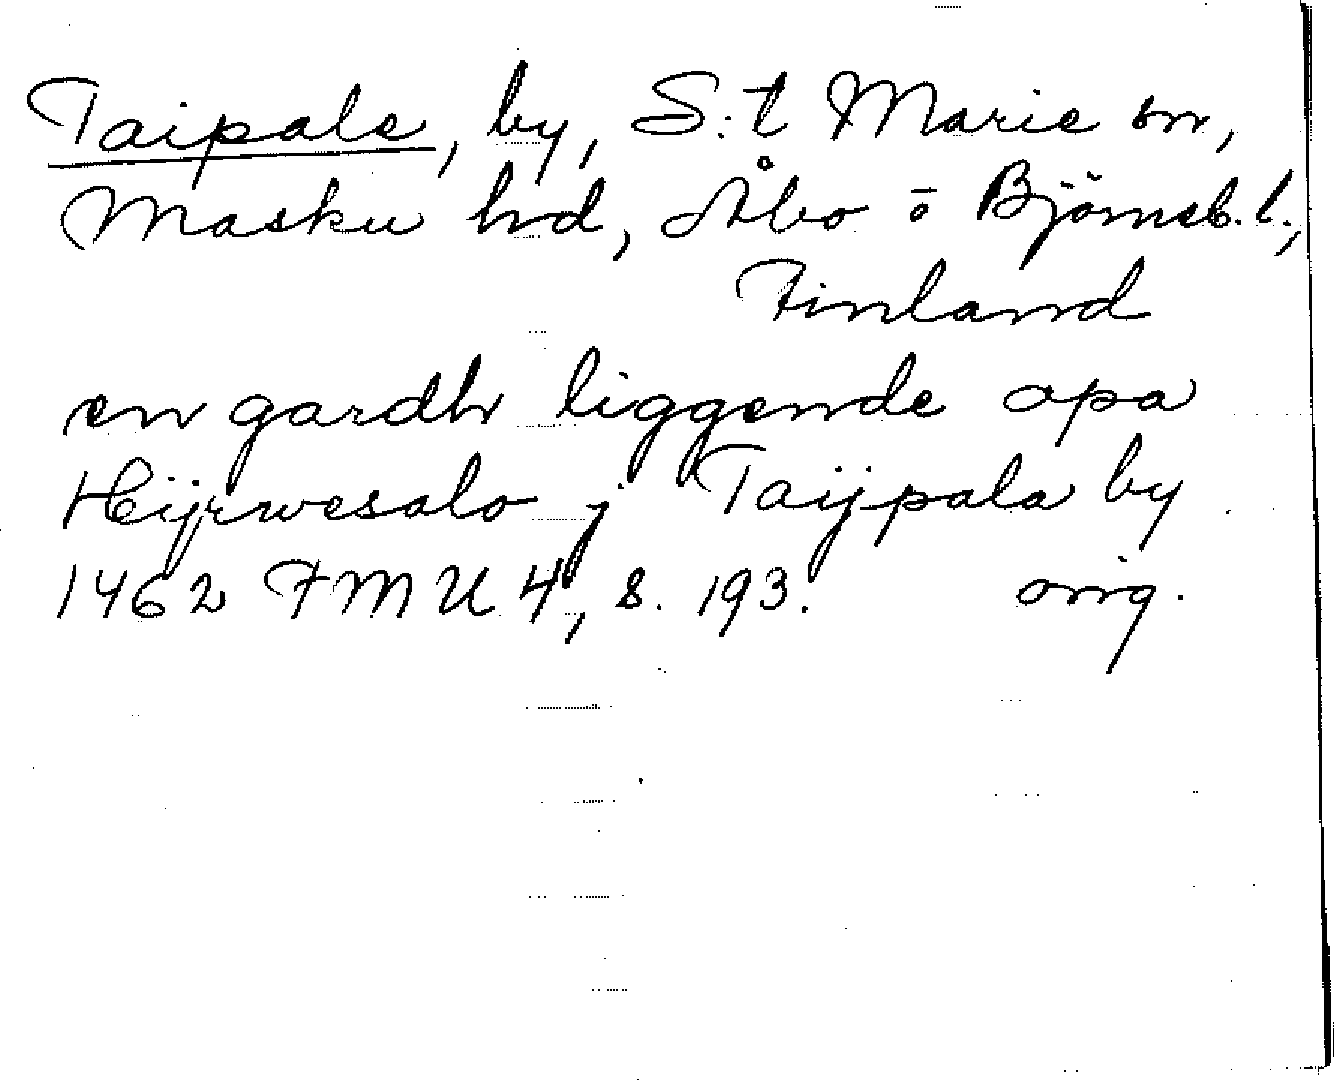 Taipale, by, S:t Marie sn,
Masku hd, Åbo o Björneb. l.,
Finland
en gardh liggende opa
Hijrwesalo j Taijpala by
1462 FMU 4, s. 193. orig.